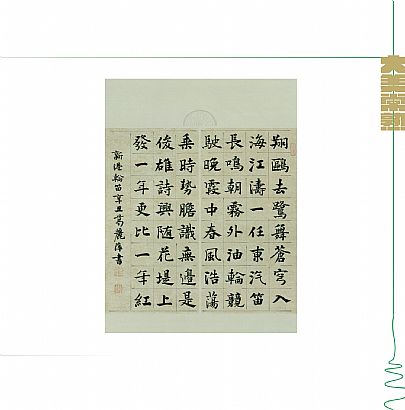 大美常熟
翔鷗去鷺舞蒼穹入
海江濤一任東汽笛
長鳴朝霧外油輪競
駛晚霞中春風浩蕩
乘時勢膽識無邊是
俊雄詩興随花堤上
發一年更比一年紅
新港笛辛丑葛麗萍書